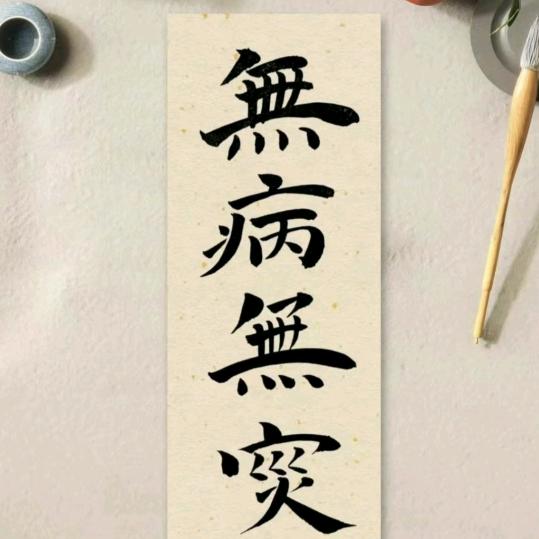 無病無災